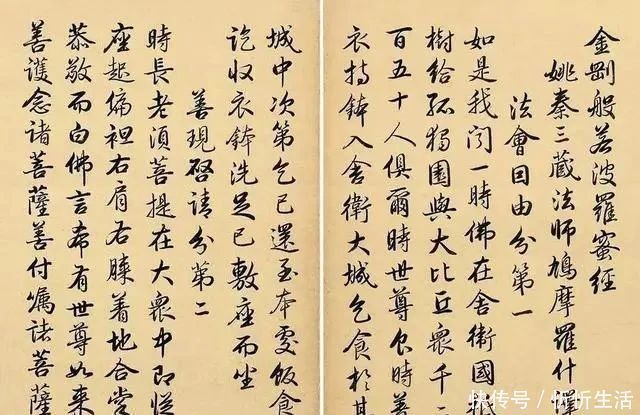 金剛般若波羅蜜經
姚秦三藏法師鳩摩羅什譯
法會因由分第一
如是我聞一時佛在舍衛國祇
樹給孤獨園與大比丘衆千二
百五十人俱爾時世尊食時著
衣持鉢入舍衛大城乞食於其
城中次第乞已還至本處飯食
訖收衣鉢洗足已敷座而坐
善現啓請分第二
時長老須菩提在大衆中即從
座起偏袒右肩右膝着地合掌
恭敬而白佛言希有世尊如來
善護念諸菩薩善付囑諸菩薩
快传号/忻忻生活